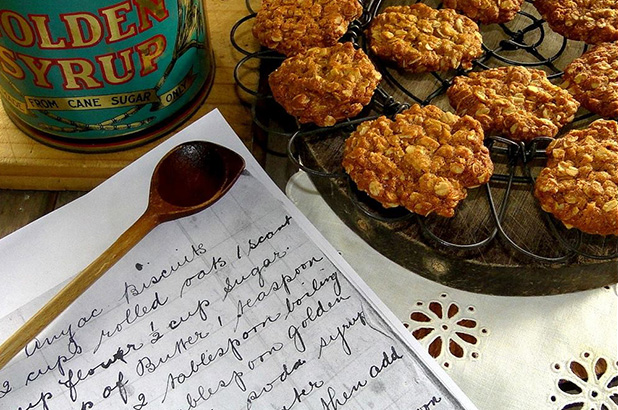 GOLDEN
SYRUP
FROM CANE SUGAR ONLY
Anzac Biscuits
2 cups rolled oats 1 scant
cup flour ½ cup sugar.
cup of Butter 1 teaspoon
2 tablespoon boiling
tablespoon Golden
soda syrup
then add